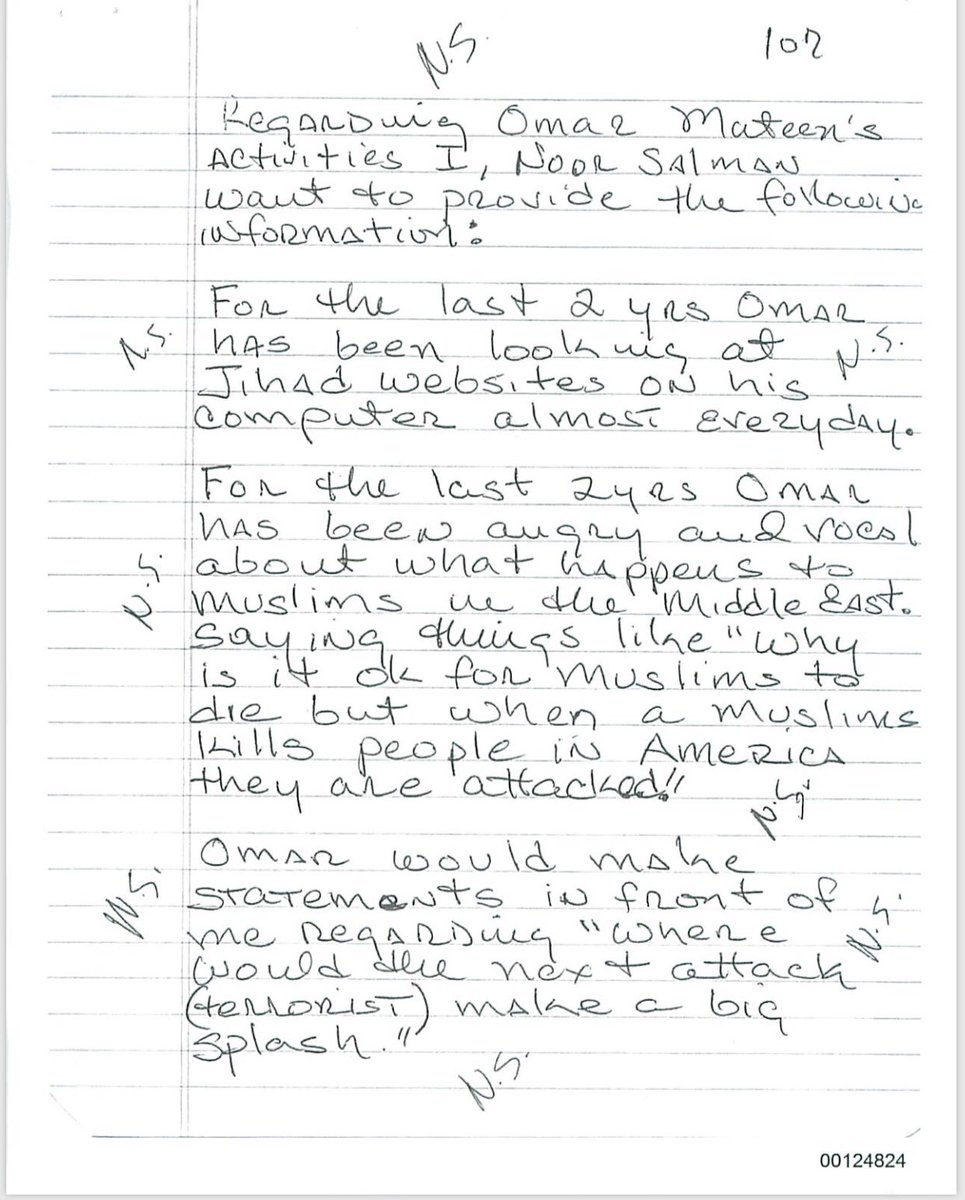 N.S.
1 of 2
Regarding Omar Mateen's
Activities I, Noor Salman
want to provide the following
information:
For the last 2 yrs Omar
N.S. has been looking at N.S.
Jihad websites on his
computer almost everyday.
For the last 2yrs Omar
has been angry and vocal
about what happens to
N.S. muslims in the middle East.
Saying things like "why
is it ok for muslims to
die but when a muslims
kills people in America
they are attacked!"
N.S.
Omar would make
N.S. statements in front of N.S.
me regarding "where
would the next attack
(terrorist) make a big
splash."
N.S.
00124824